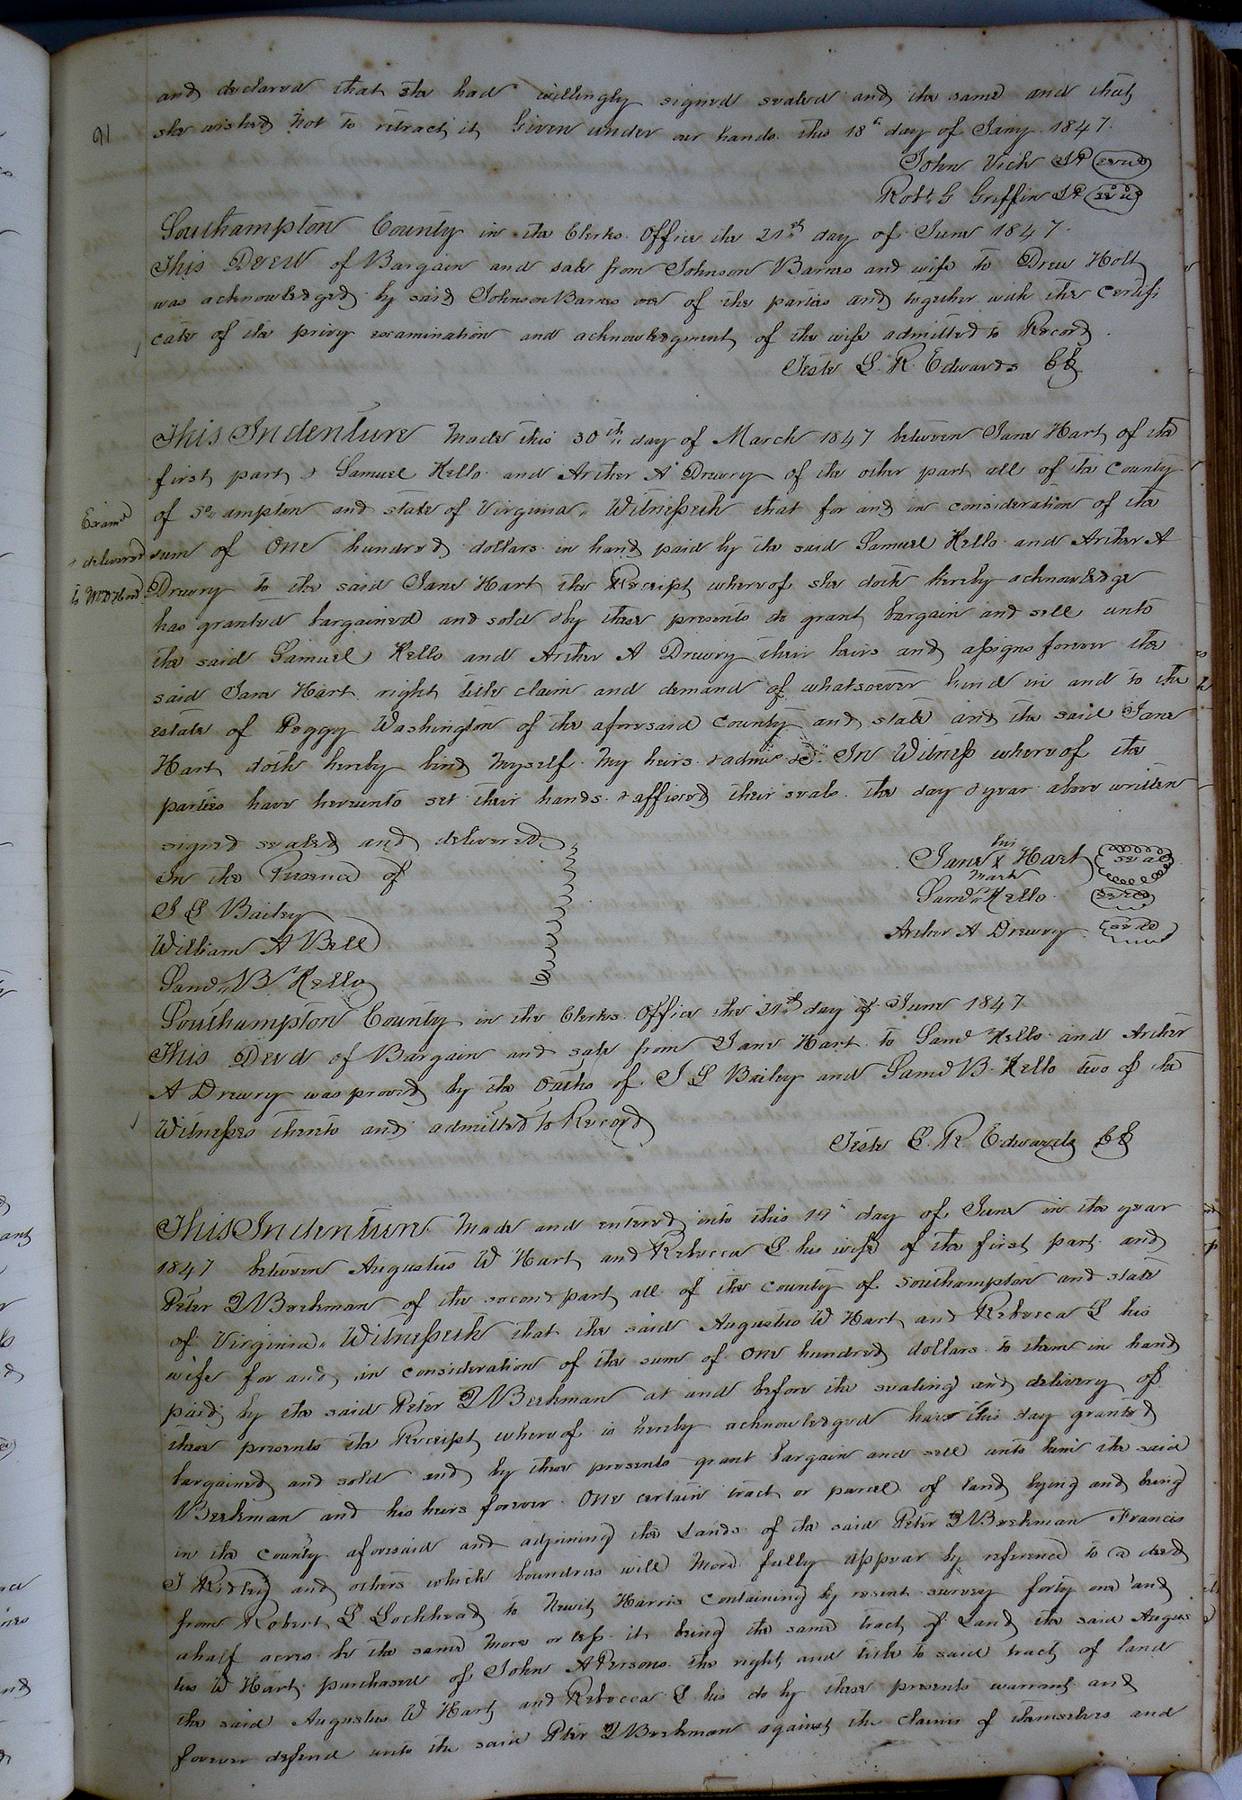 91
and declared that she had willingly signed sealed and the same and that
she wished not to retract it Given under our hands this 18th day of Jany 1847.
John Vick JP (seal)
Robt G Griffin JP (seal)
Southampton County in the Clerks Office the 21st day of June 1847.
This Deed of Bargain and sale from Johnson Barnes and wife to Drew Holt
was acknowledged by said Johnson Barnes one of the parties and together with the certifi
cate of the privy examination and acknowledgment of the wife admitted to Record.
Teste L. R. Edwards CC
This Indenture Made this 30th day of March 1847 between Jane Hart of the
first part & Samuel Kello and Arther A Drewry of the other part all of the County
of So ampton and state of Virginia, Witnesseth that for and in consideration of the
sum of One hundred dollars in hand paid by the said Samuel Kello and Arther A
Drewry to the said Jane Hart the Receipt whereof she doth hereby acknowledge
Examd
& delivered
to
has granted bargained and sold & by these presents do grant bargain and sell unto
the said Samuel Kello and Arther A Drewry their heirs and assigns forever the
said Jane Hart right title claim and demand of whatsoever kind in and to the
estate of Peggy Washington of the aforesaid County and state and the said Jane
Hart doth hereby bind myself My heirs & adms &c. In Witness whereof the
parties have hereunto set their hands & affixed their seals the day & year above written
signed sealed and delivered
in the Presence of
J L Bailey
William A Bell
Saml B Kello
his
Jane X Hart (seal)
mark
Saml Kello (seal)
Arther A Drewry (seal)
Southampton County in the Clerks Office the 21st day of June 1847
This Deed of Bargain and sale from Jane Hart to Saml Kello and Arther
A Drewry was proved by the Oaths of J L Bailey and Saml B Kello two of the
Witnesses thereto and admitted to Record
Teste L. R. Edwards CC
This Indenture Made and entered into this 19th day of June in the year
1847 between Augustus W Hart and Rebecca L his wife of the first part and
Peter J Beekman of the second part all of the County of Southampton and state
of Virginia, Witnesseth that the said Augustus W Hart and Rebecca L his
wife for and in consideration of the sum of One hundred dollars to them in hand
paid by the said Peter J Beekman at and before the sealing and delivery of
these presents the Receipt whereof is hereby acknowledged have this day granted
bargained and sold and by these presents grant bargain and sell unto him the said
Beekman and his heirs forever One certain tract or parcel of land lying and being
in the County aforesaid and adjoining the Lands of the said Peter J Beekman Francis
T Ridley and others which boundries will More fully appear by reference to a deed
from Robert L Lockhead to Newit Harris Containing by resent survey forty one and
a half acres be the same More or less it being the same tract of Land the said Augus
tus W Hart purchased of John A Persons the right and title to said tract of land
the said Augustus W Hart and Rebecca L his do by these presents warrant and
forever defend unto the said Peter J Beekman against the claims of themselves and